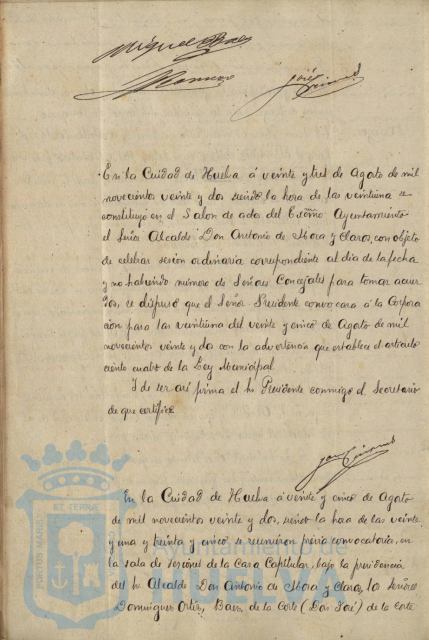 Miguel Báez
José
En la Cuidad de Huelva á veinte y tres de Agosto de mil
novecientos veinte y dos siendo la hora de las veintiuna se
constituyó en el Salon de actos del Excmo Ayuntamiento
el Señor Alcalde Don Antonio de Mora y Claros, con objeto
de celebrar sesion ordinaria correspondiente al dia de la fecha
y no habiendo número de Señores Concejales para tomar acuer
dos, se dispuso que el Señor Presidente convocara á la Corpora
ción para las veintiuna del veinte y cinco de Agosto de mil
novecientos veinte y dos con la advertencia que establece el artículo
ciento cuatro de la Ley Municipal.
Y de ser así firma el Sr Presidente conmigo el Secretario
de que certifico
José
En la Cuidad de Huelva á veinte y cinco de Agosto
de mil novecientos veinte y dos, siendo la hora de las veinte
y una y treinta y cinco se reunieron previa convocatoria, en
la sala de sesiones de la Casa Capitular, bajo la presidencia
del Sr Alcalde Don Antonio de Mora y Claros, los Señores
Dominguez Ortiz, Baez, de la Corte (Don José) de la Corte
PORTUS MARIS ET TERRAE
Ayuntamiento de
HUELVA